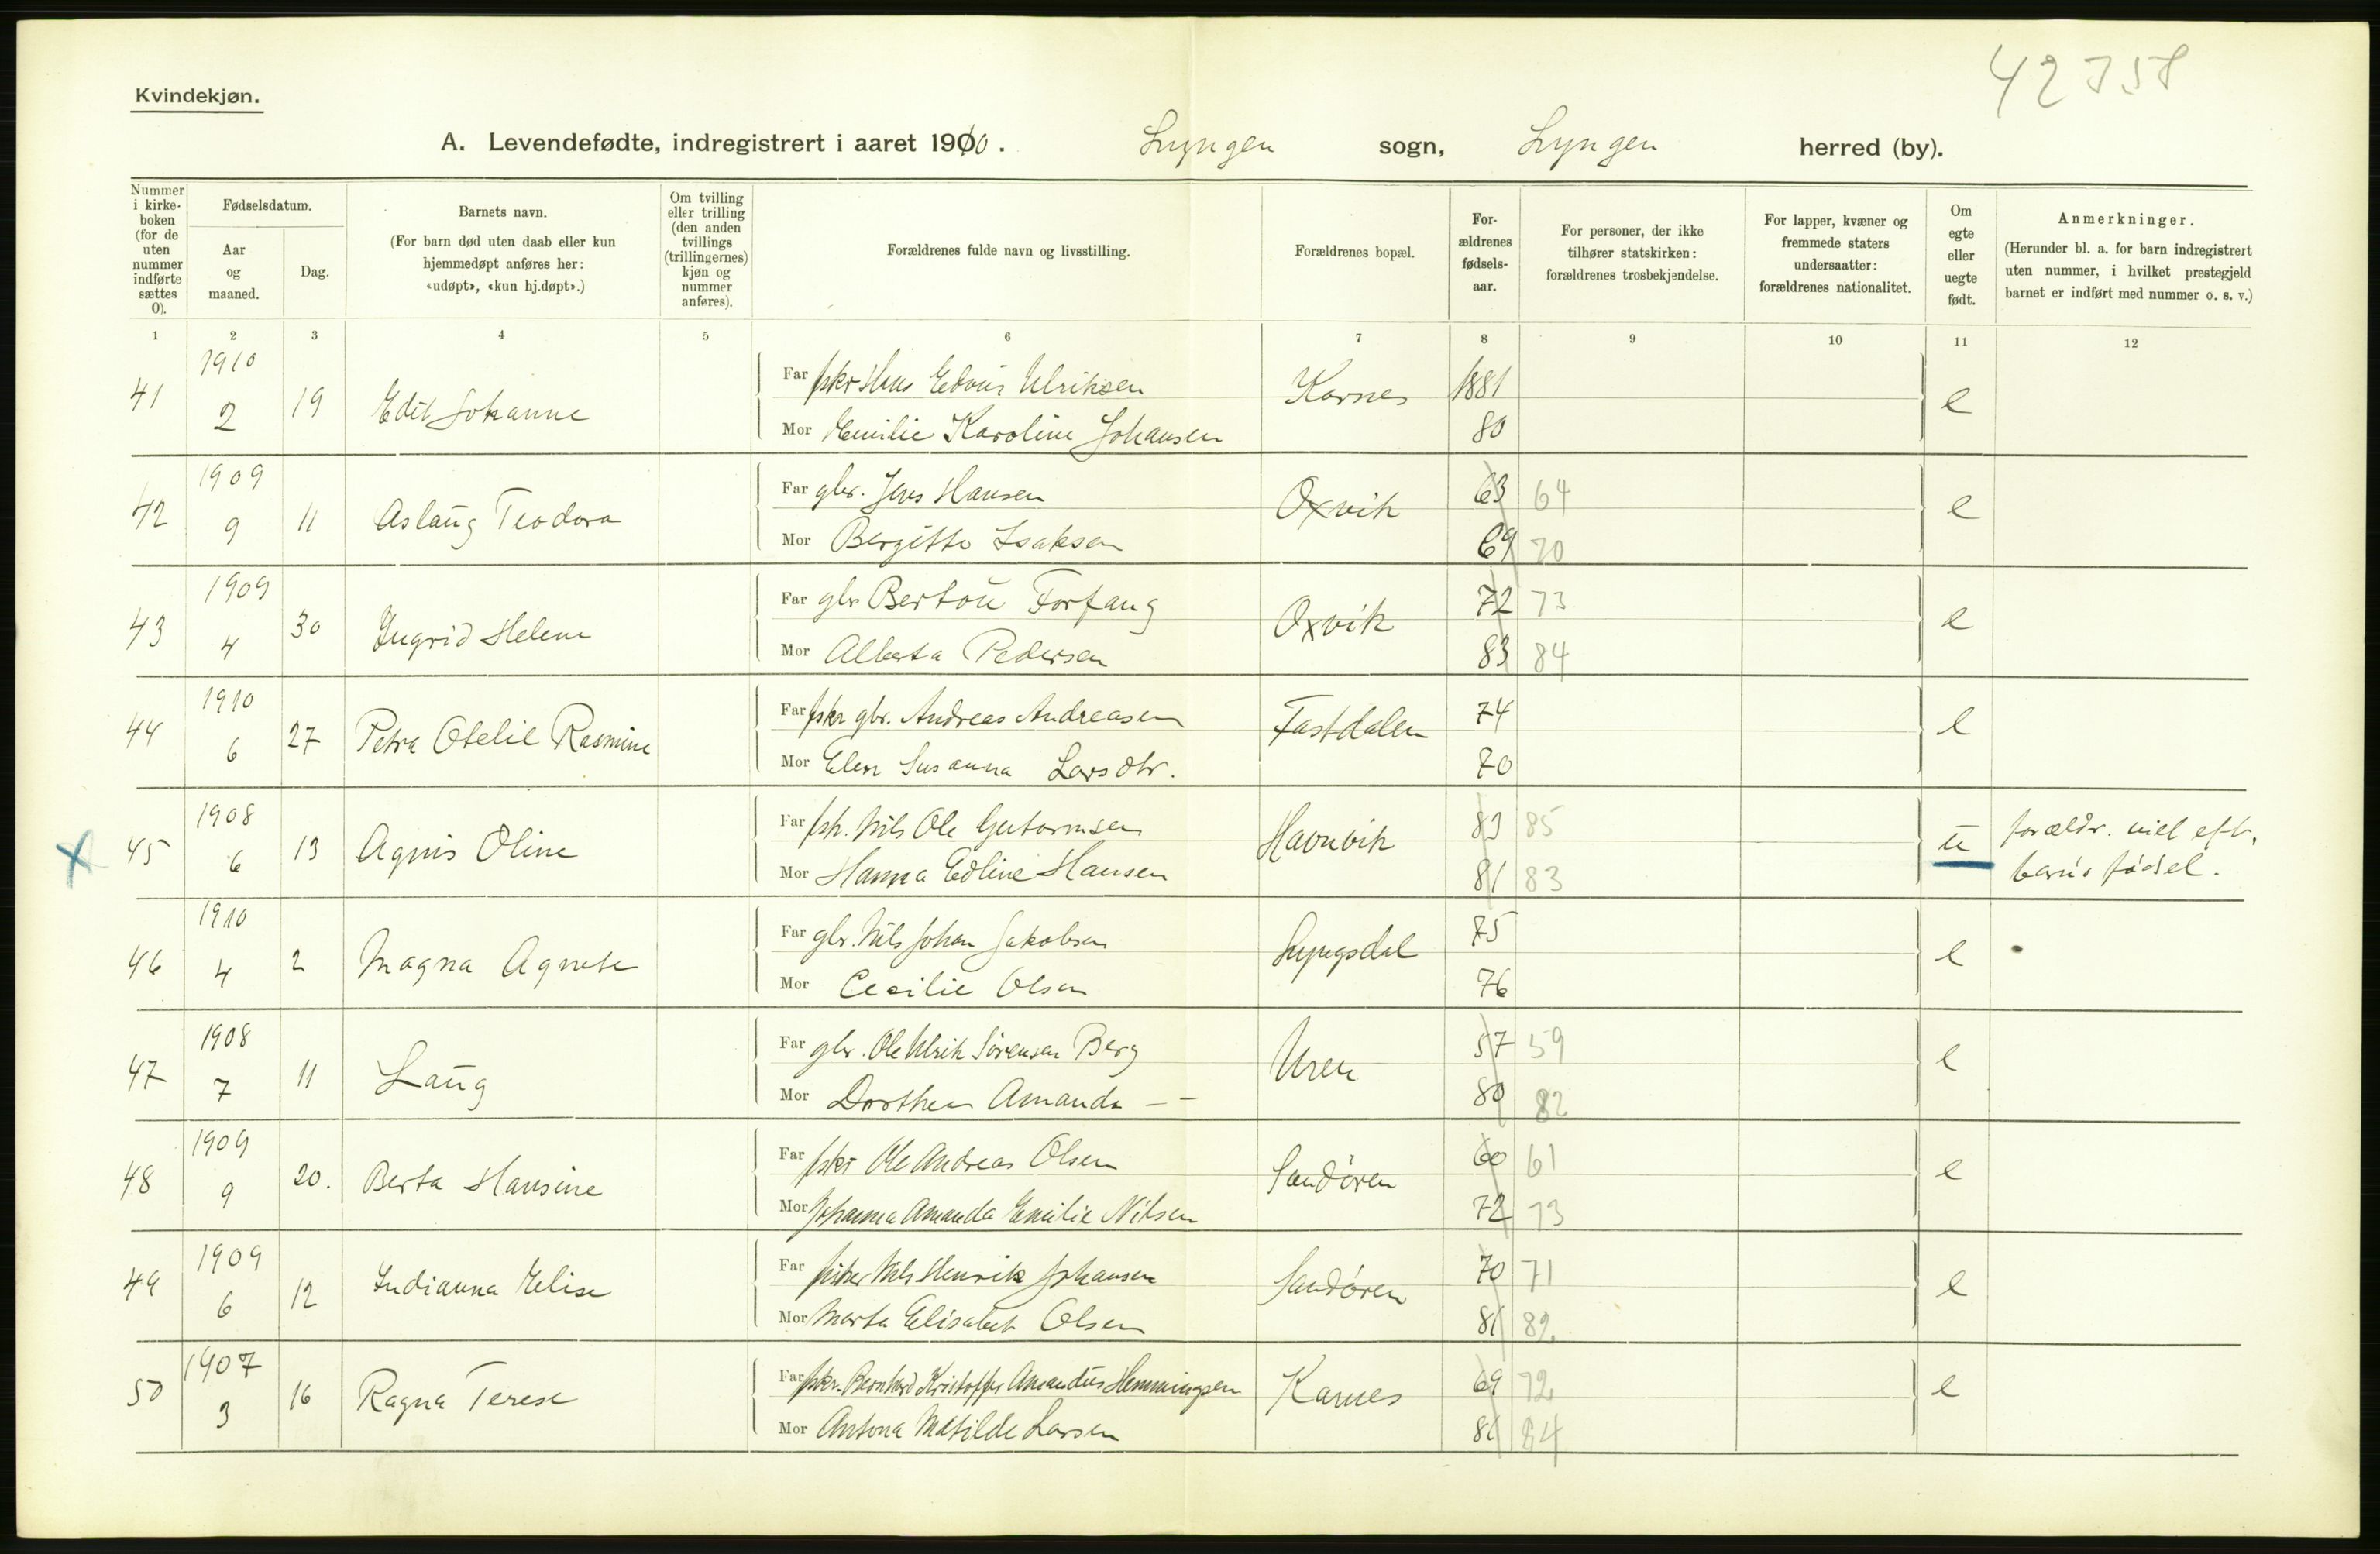 42758
Kvindekjøn.
A. Levendefødte, indregistrert i aaret 1910. Lyngen sogn, Lyngen herred (by).
Nummer i kirkeboken (for de uten nummer indførte sættes 0).
Fødselsdatum.
Aar og maaned.
Dag.
Barnets navn.
(For barn død uten daab eller kun hjemmedøpt anføres her: «udøpt», «kun hj.døpt».)
Om tvilling eller trilling (den anden tvillings (trillingernes) kjøn og nummer anføres).
Forældrenes fulde navn og livsstilling.
Forældrenes bopæl.
Forældrenes fødselsaar.
For personer, der ikke tilhører statskirken: forældrenes trosbekjendelse.
For lapper, kvæner og fremmede staters undersaatter: forældrenes nationalitet.
Om egte eller uegte født.
Anmerkninger.
(Herunder bl. a. for barn indregistrert uten nummer, i hvilket prestegjeld barnet er indført med nummer o. s. v.)
1 2 3 4 5 6 7 8 9 10 11 12
41 1910 2 19 Edit Johanne
Far fskr Hans Edvin Ulriksen Karnes 1881 e
Mor Emilie Karoline Johansen 80
42 1909 9 11 Aslaug Teodora
Far gbr. Jens Hansen Oxvik 63 64 e
Mor Bergitte Isaksen 69 70
43 1909 4 30 Ingrid Helene
Far gbr Berton Forfang Oxvik 72 73 e
Mor Alberta Pedersen 83 84
44 1910 6 27 Petra Otelie Rasmine
Far fskr gbr. Andreas Andreasen Fastdalen 74 e
Mor Elen Susanna Larsdtr. 70
X 45 1908 6 13 Agnis Oline
Far fsk. Nils Ole Guttormsen Havnvik 83 85 u forældr. viet eft.
Mor Hanna Edline Hansen 81 83 barns fødsel.
46 1910 4 2 Magna Agnete
Far gbr. Nils Johan Jakobsen Lyngsdal 75 e
Mor Cecilie Olsen 76
47 1908 7 11 Laug
Far gbr. Ole Ulrik Sørensen Berg Uren 57 59 e
Mor Dorthea Amanda – – 80 82
48 1909 9 20. Berta Hansine
Far fskr Ole Andreas Olsen Sandøren 60 61 e
Mor Johanna Amanda Emilie Nilsen 72 73
49 1909 6 12 Indianna Elise
Far fisker Nils Henrik Johansen Sandøren 70 71 e
Mor Marta Elisabet Olsen 81 82
50 1907 3 16 Ragna Terese
Far fskr. Bernhard Kristoffer Amandus Hemmingsen Karnes 69 72 e
Mor Antona Matilde Larsen 81 84